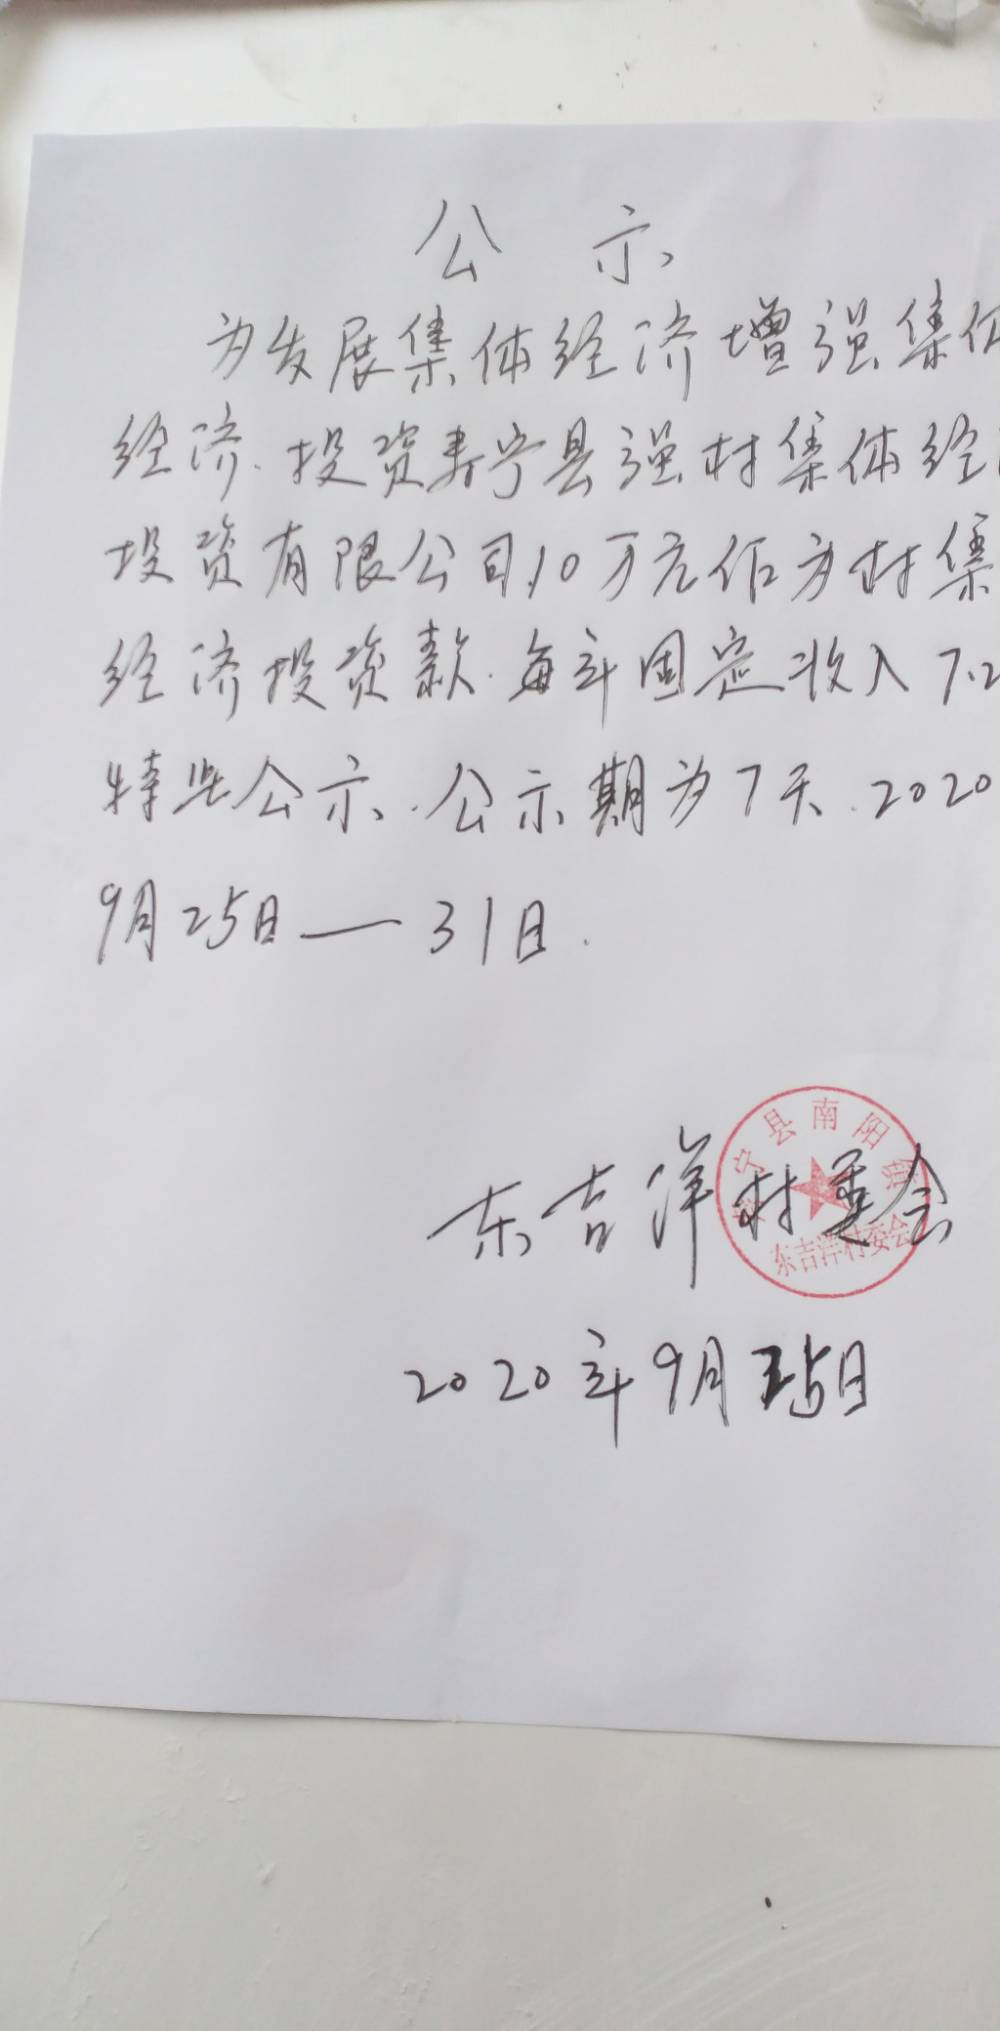 公示
为发展集体经济增强集体
经济.投资寿宁县强村集体经
投资有限公司10万元作为村集
经济投资款.每年固定收入7.2
特此公示.公示期为7天.2020
9月25日—31日.
寿宁县南阳镇
东吉洋村委会
东吉洋村委会
2020年9月25日